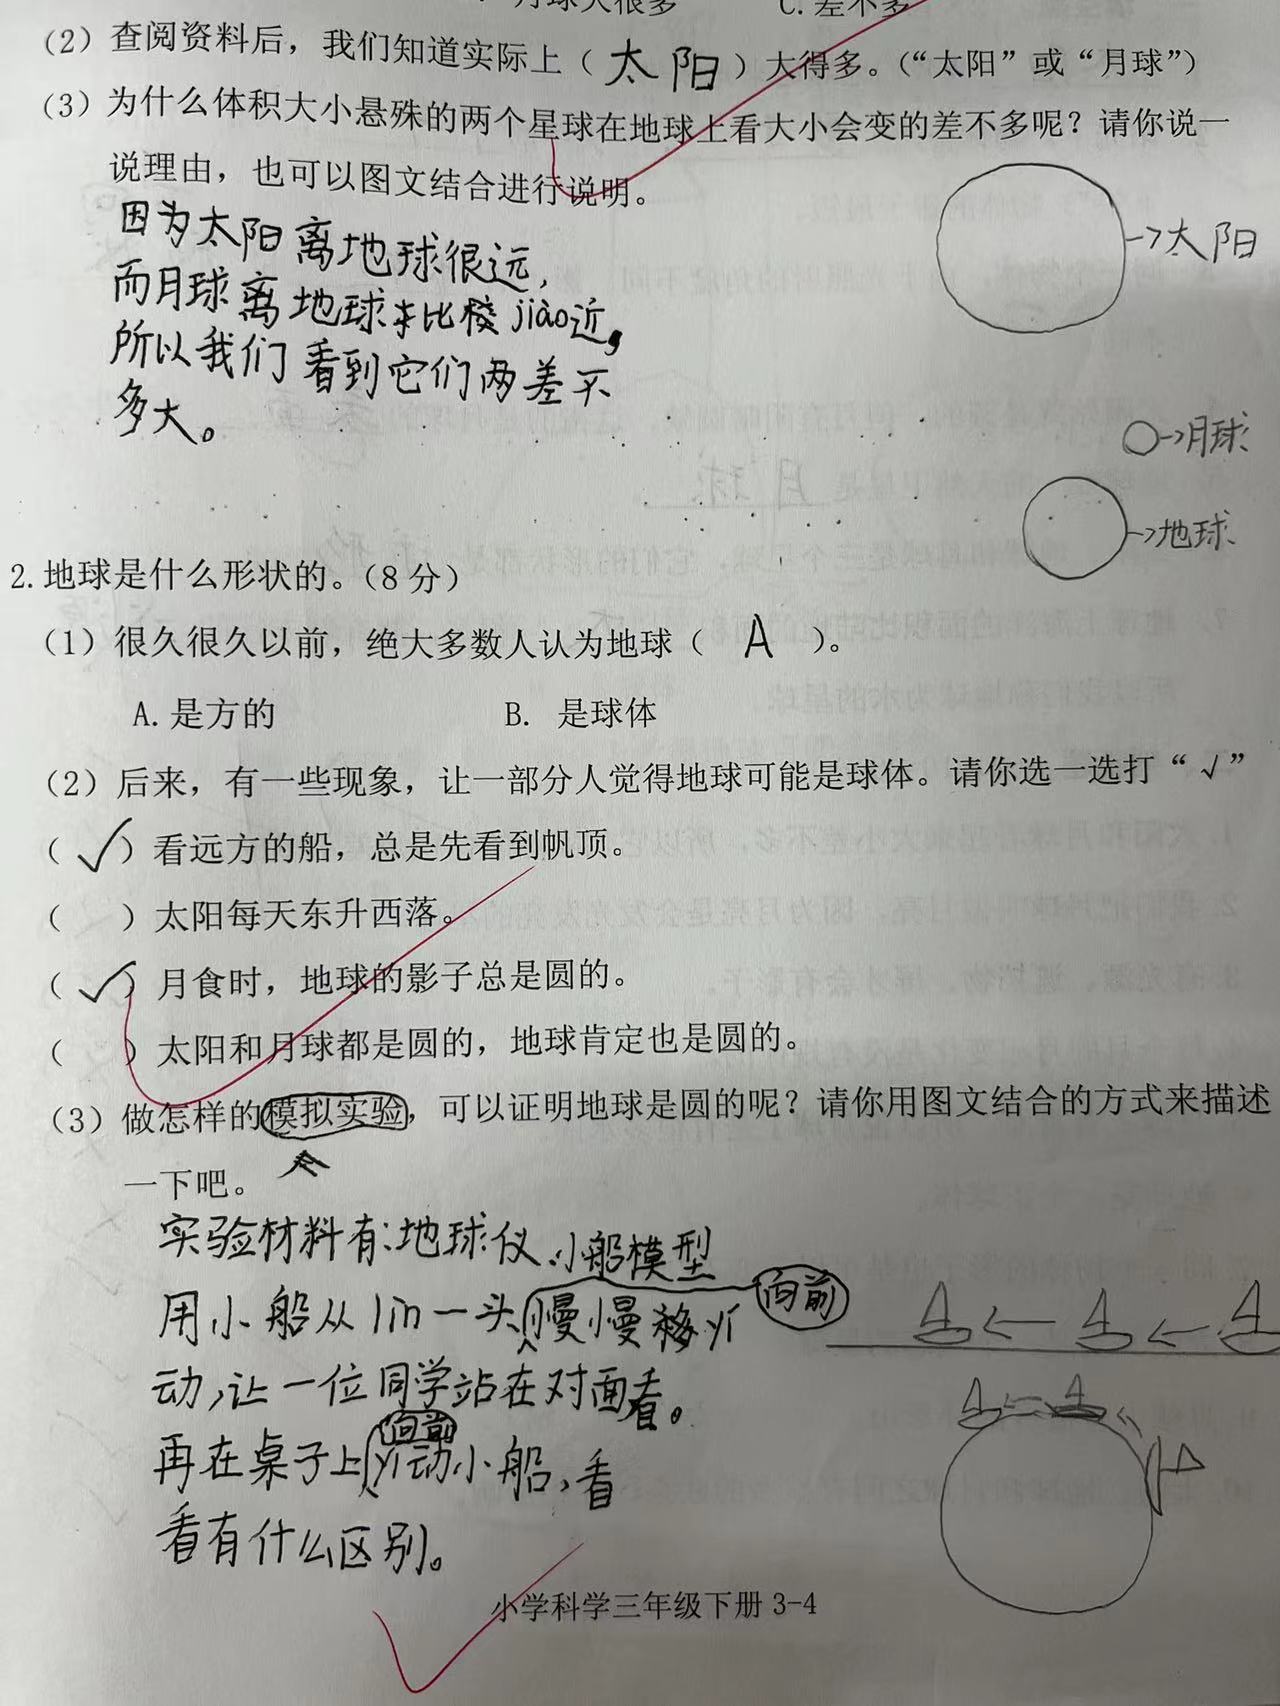 月球大很多 C.差不多
（2）查阅资料后，我们知道实际上（ 太阳 ）大得多。（“太阳”或“月球”）
（3）为什么体积大小悬殊的两个星球在地球上看大小会变的差不多呢？请你说一
说理由，也可以图文结合进行说明。
因为太阳离地球很远，
而月球离地球比较jiào近，
所以我们看到它们两差不
多大。
→太阳
→月球
→地球
2.地球是什么形状的。（8分）
（1）很久很久以前，绝大多数人认为地球（ A ）。
A.是方的 B. 是球体
（2）后来，有一些现象，让一部分人觉得地球可能是球体。请你选一选打“√”
（ √ ）看远方的船，总是先看到帆顶。
（ ）太阳每天东升西落。
（ √ ）月食时，地球的影子总是圆的。
（ ）太阳和月球都是圆的，地球肯定也是圆的。
（3）做怎样的模拟实验，可以证明地球是圆的呢？请你用图文结合的方式来描述
一下吧。
实验材料有：地球仪、小船模型
用小船从lin一头向前慢慢移yí
动，让一位同学站在对面看。
再在桌子上向前yí动小船，看
看有什么区别。
小学科学三年级下册 3-4